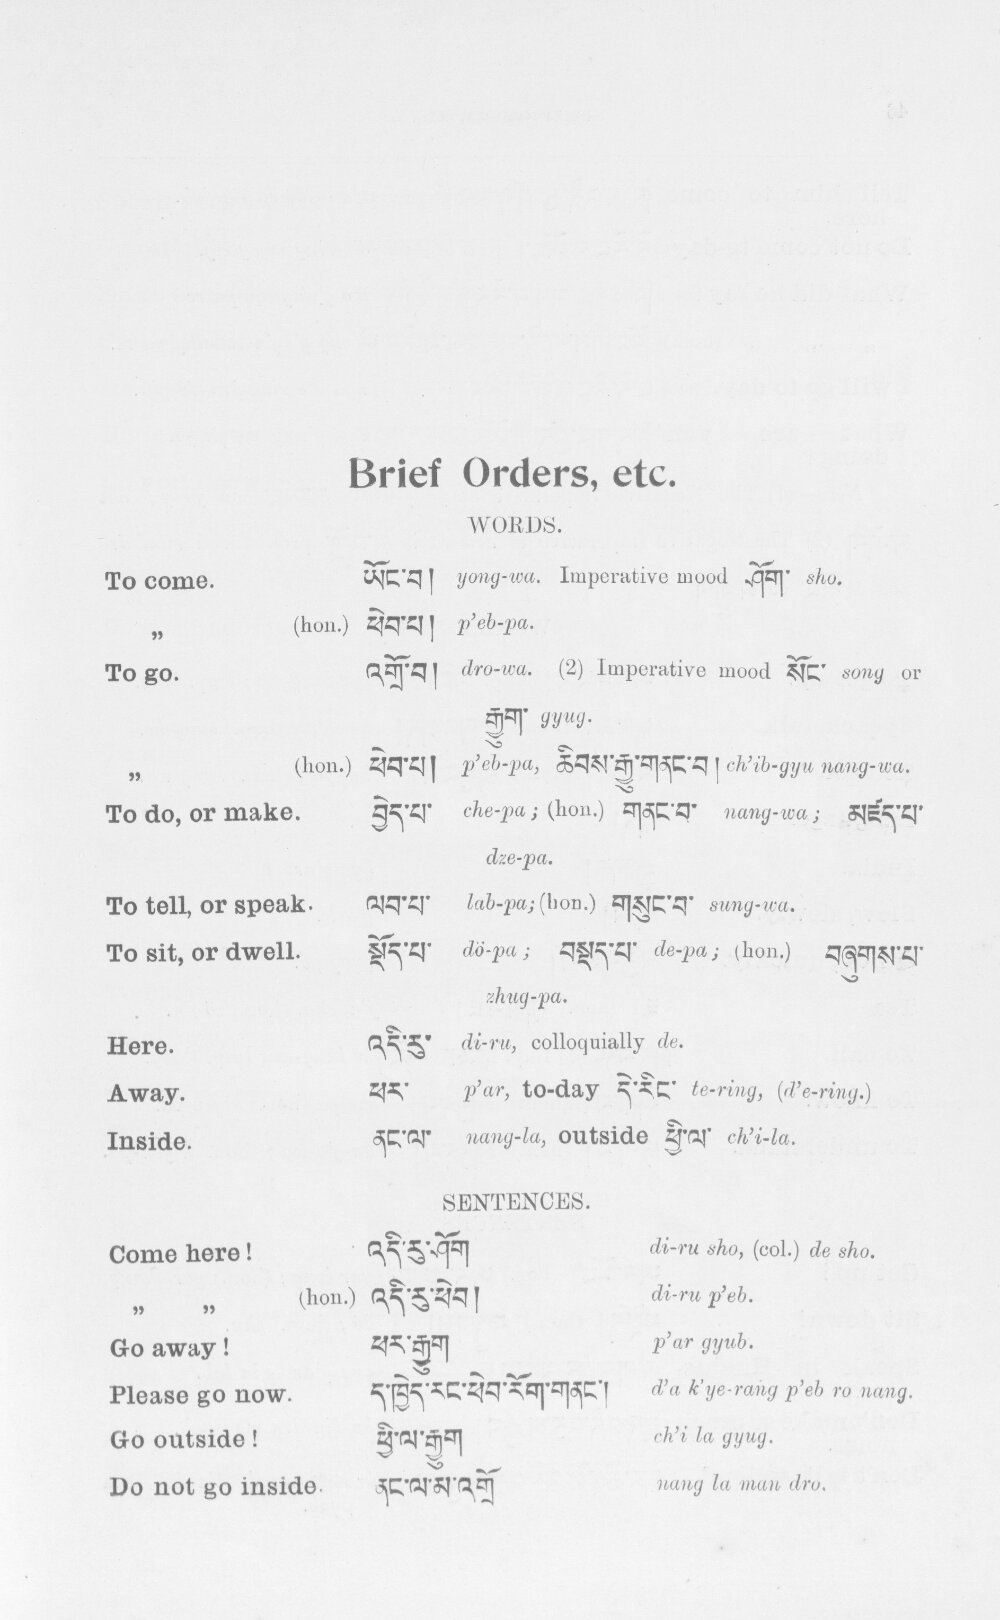 Brief Orders, etc.
WORDS.
To come. ཡོང་བ། yong-wa. Imperative mood ཤོག་ sho.
„ (hon.) ཕེབ་པ། p’eb-pa.
To go. འགྲོ་བ། dro-wa. (2) Imperative mood སོང་ song or
རྒྱུག་ gyug.
„ (hon.) ཕེབ་པ། p’eb-pa, ཆིབས་རྒྱུ་གནང་བ། ch’ib-gyu nang-wa.
To do, or make. བྱེད་པ་ che-pa; (hon.) གནང་བ་ nang-wa; མཛད་པ་
dze-pa.
To tell, or speak. ལབ་པ་ lab-pa; (hon.) གསུང་བ་ sung-wa.
To sit, or dwell. སྡོད་པ་ dö-pa; བསྡད་པ་ de-pa; (hon.) བཞུགས་པ་
zhug-pa.
Here. འདི་རུ་ di-ru, colloquially de.
Away. ཕར་ p’ar, to-day དེ་རིང་ te-ring, (d’e-ring.)
Inside. ནང་ལ་ nang-la, outside ཕྱི་ལ་ ch’i-la.
SENTENCES.
Come here! འདི་རུ་ཤོག di-ru sho, (col.) de sho.
„ „ (hon.) འདི་རུ་ཕེབ། di-ru p’eb.
Go away! ཕར་རྒྱུག p’ar gyub.
Please go now. ད་ཁྱེད་རང་ཕེབ་རོག་གནང་། d’a k’ye-rang p’eb ro nang.
Go outside! ཕྱི་ལ་རྒྱུག ch’i la gyug.
Do not go inside. ནང་ལ་མ་འགྲོ nang la man dro.